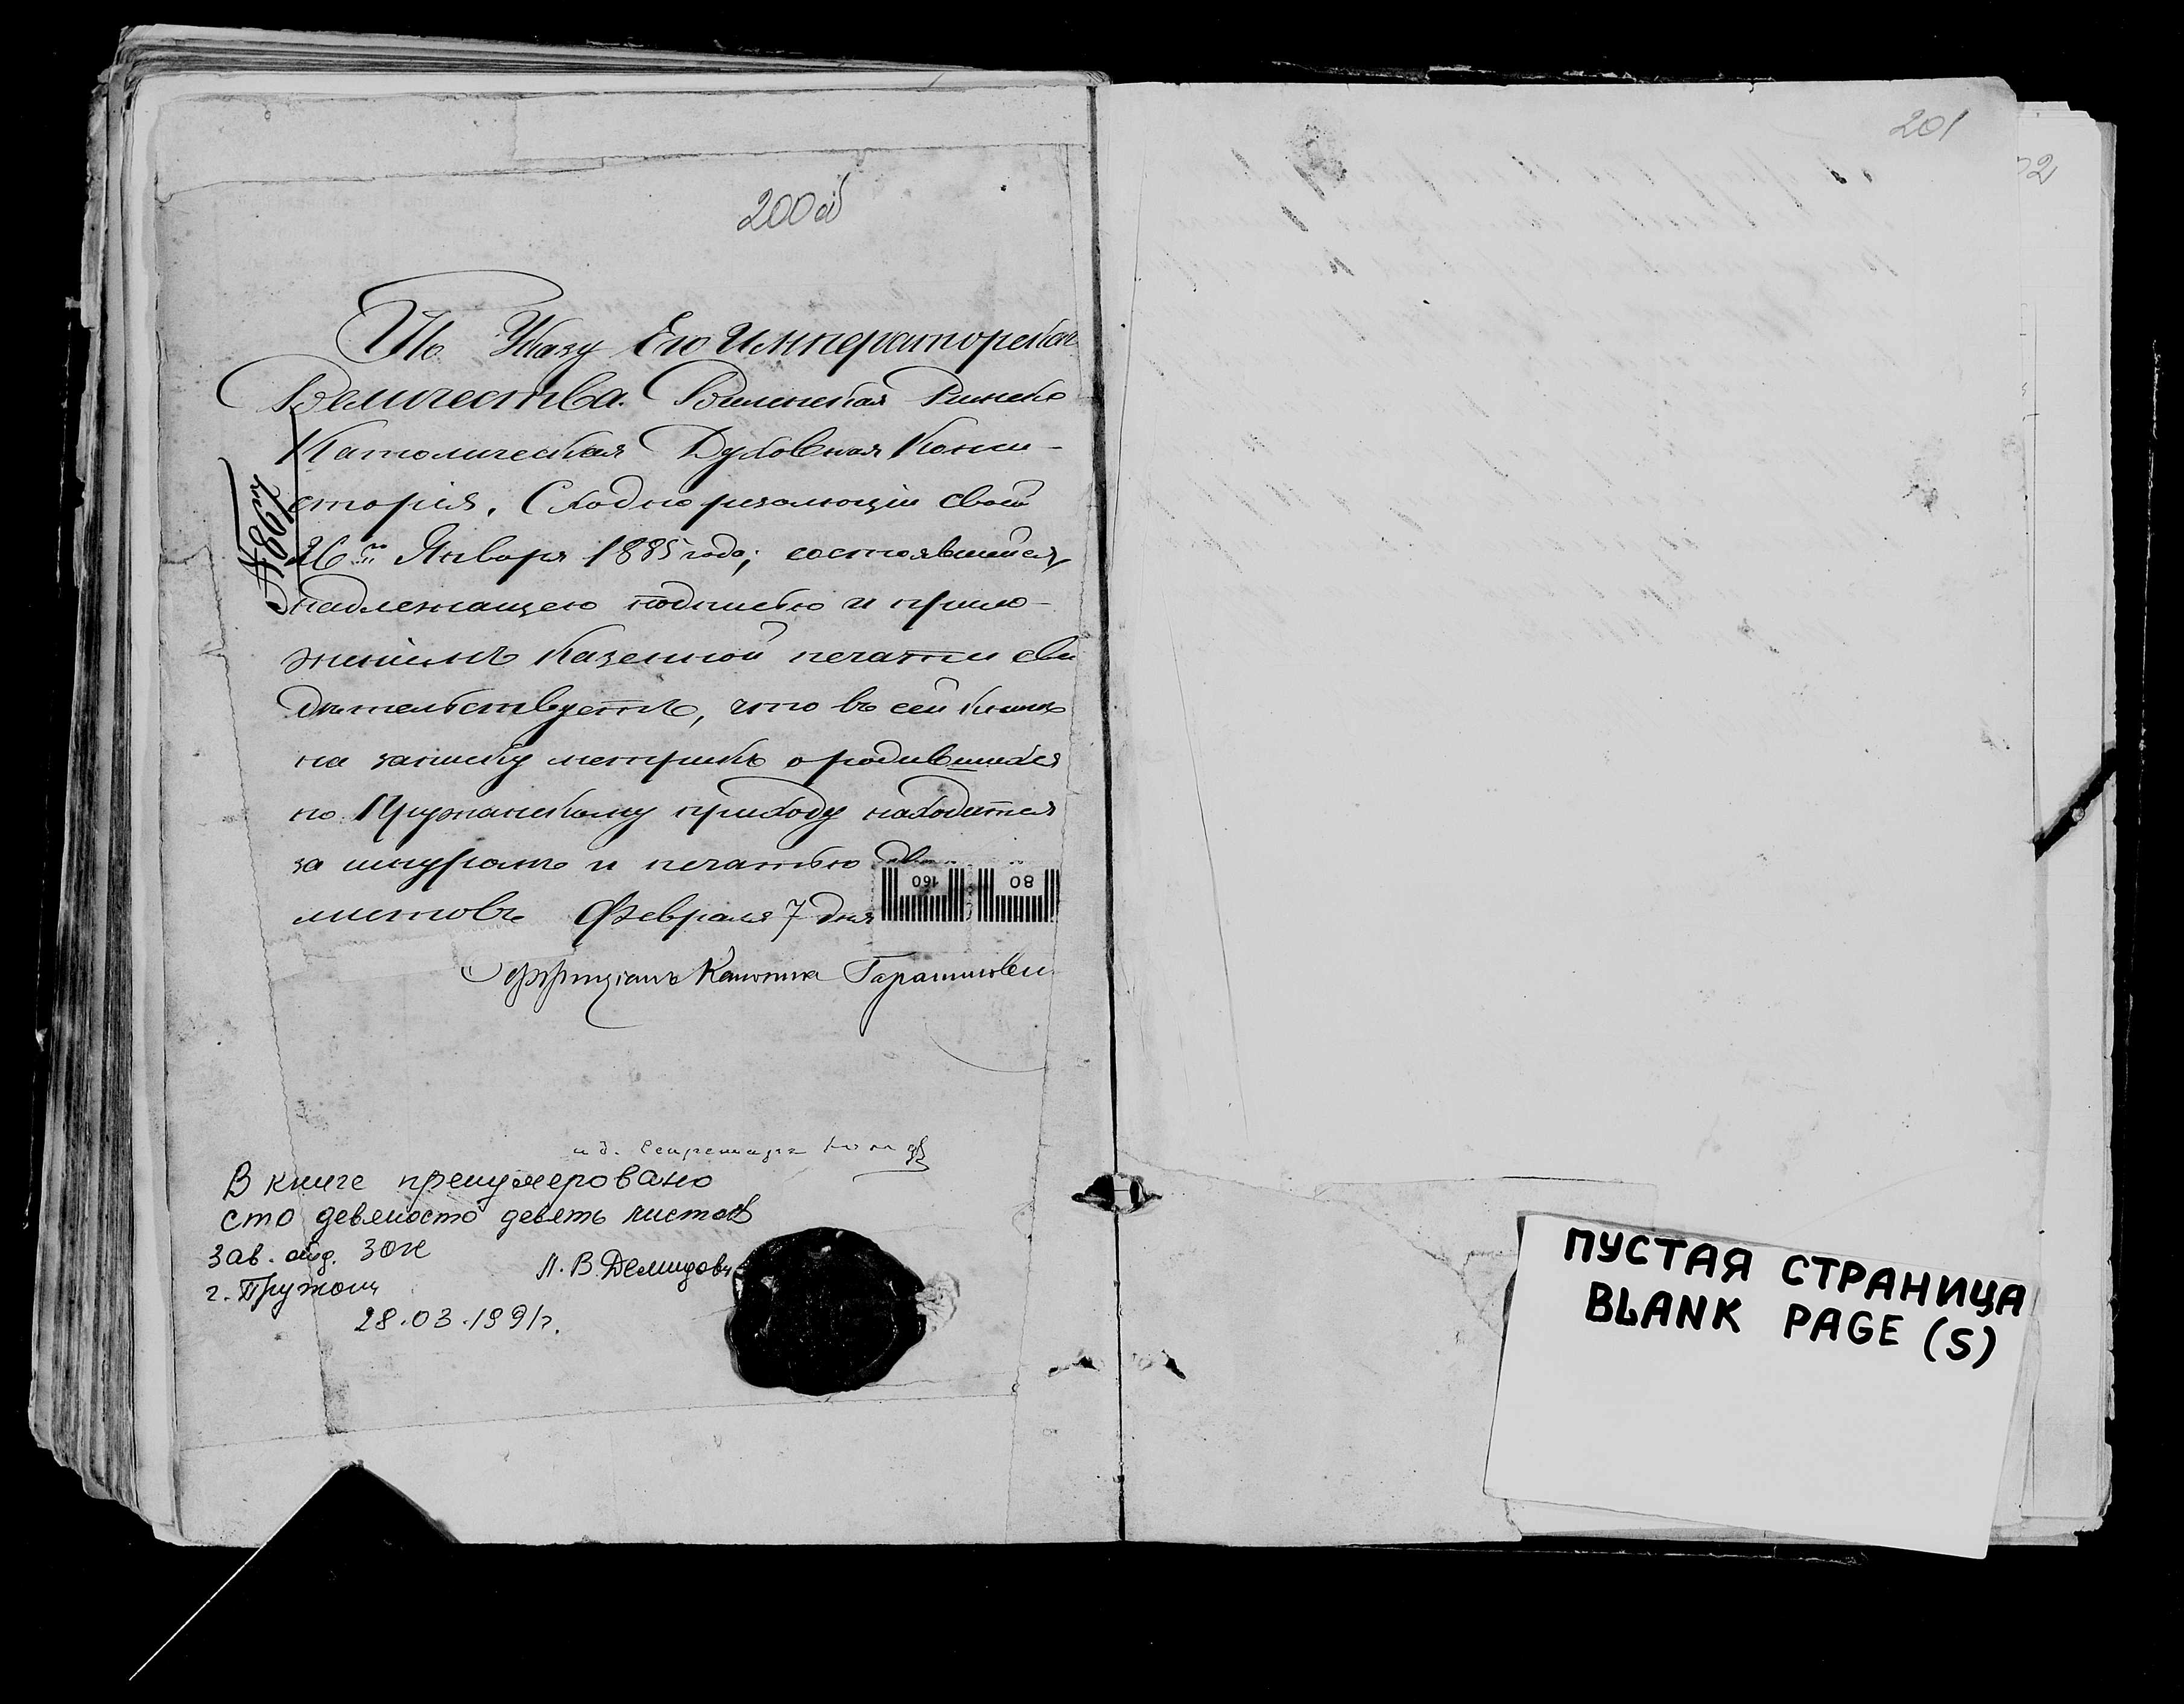 200об
По Указу Его Императорскаго
Величества. Виленская Римско
Католическая Духовная Конси-
сторія, Сходно резолюціи своей
26го Января 1885 года, состоявшейся,
надлежащею подписью и прило-
женіемъ казенной печати сви
дѣтельствуетъ, что въ сей книгѣ
на записку метрикъ о родившихся
по Пружанскому приходу находится
за шнуромъ и печатью
листовъ Февраля 7 дня
160
80
Каноника
и д. Секретаря
В книге пренумеровано
сто девяносто девять листов
зав. отд. ЗОЖ
г. Пружаны
Л. В. Демидов
28.03.1991г.
201
02
ПУСТАЯ СТРАНИЦА
BLANK PAGE (S)